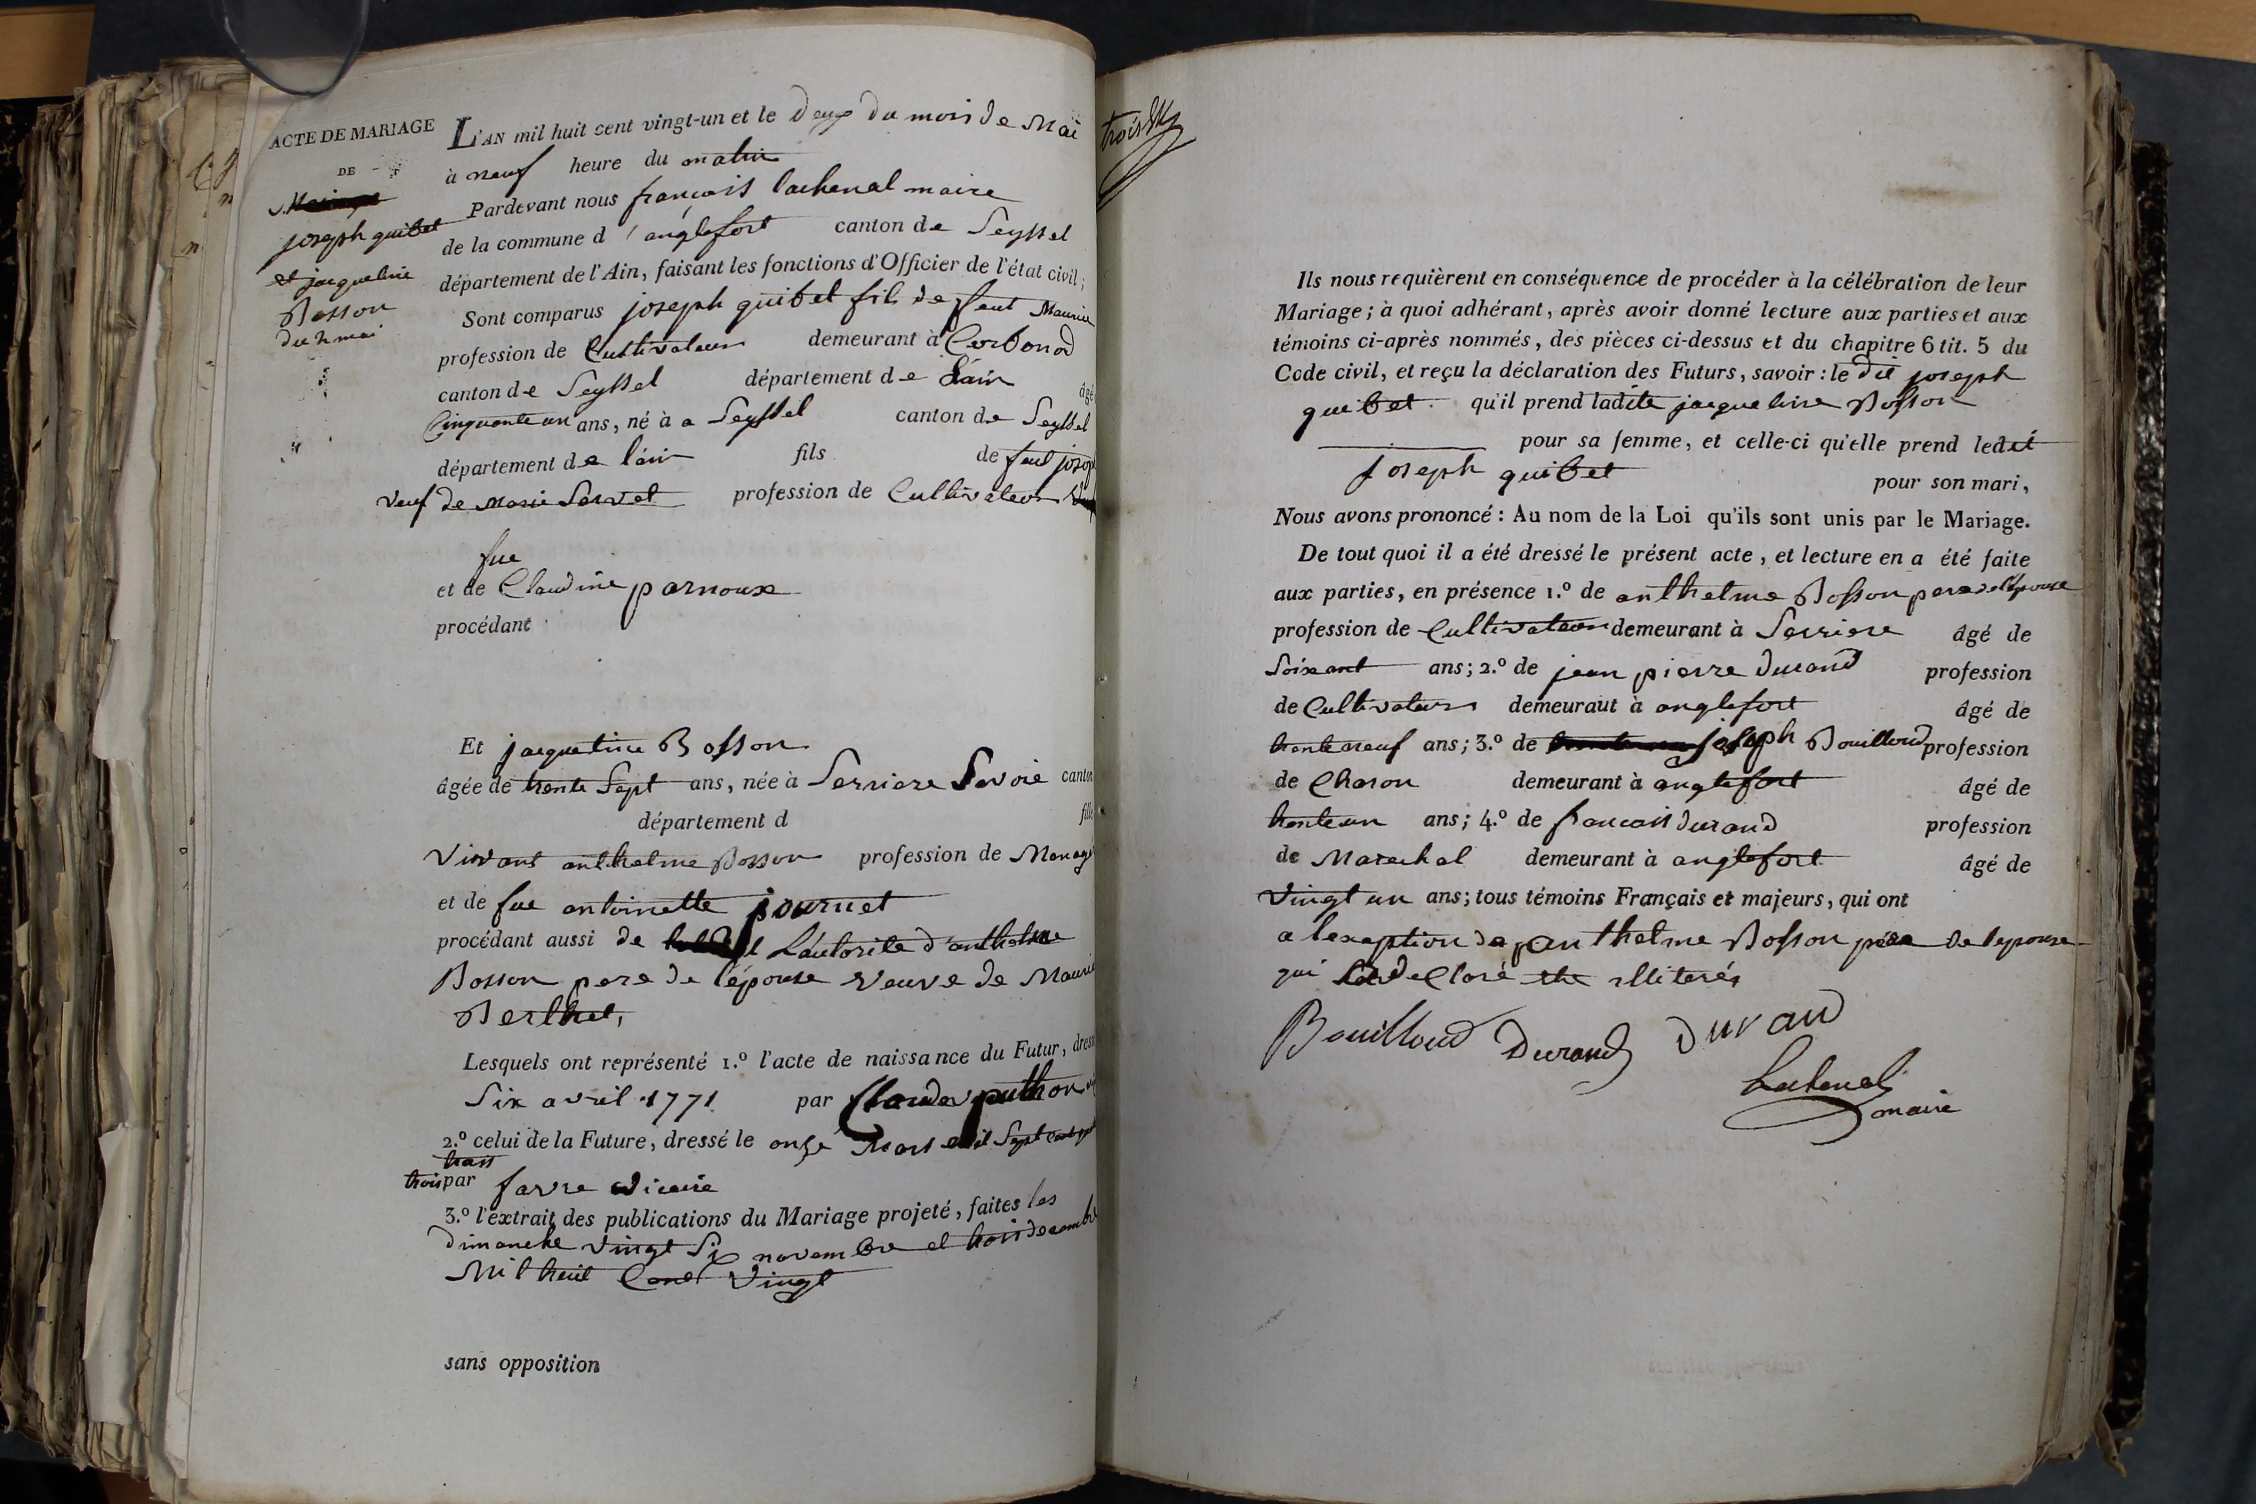 ACTE DE MARIAGE
DE
joseph guibet
et jacqueline
Bosson
du 2 mai
L'AN mil huit cent vingt-un et le deux du mois de Mai
à neuf heure du matin
Pardevant nous françois lachenal maire
de la commune d'anglefort canton de Seyssel
département de l'Ain, faisant les fonctions d'Officier de l'état civil;
Sont comparus joseph guibet fils de feut Maurice
profession de Cultivateur demeurant à Corbonod
canton de Seyssel département de L'ain âgé
Cinquante un ans, né à a Seyssel canton de Seyssel
département de l'ain fils de feut josep
veuf de Marie Servet profession de Cultivateur
fue
et de Claudine parnoux
procédant
Et jacqueline Bosson
âgée de trente Sept ans, née à Serriere Savoie canton
département d fille
vivant anthelme Bosson profession de Menag
et de fue antoinette pournet
procédant aussi de L'autorite d'anthelme
Bosson pere de l'épouse veuve de Mauri
Berthet,
Lesquels ont représenté 1.º l'acte de naissance du Futur, dress
Six avril 1771 par Claude puthon
2.º celui de la Future, dressé le onze Mars mil Sept cent
trois
trois par favre vicaire
3.º l'extrait des publications du Mariage projeté, faites les
dimanche vingt Six novembre et trois decembre
Mil huit Cent vingt
sans opposition
Ils nous requièrent en conséquence de procéder à la célébration de leur
Mariage; à quoi adhérant, après avoir donné lecture aux parties et aux
témoins ci-après nommés, des pièces ci-dessus et du chapitre 6 tit. 5 du
Code civil, et reçu la déclaration des Futurs, savoir: le dit joseph
guibet qu'il prend ladite jacqueline Bosson
pour sa femme, et celle-ci qu'elle prend ledit
joseph guibet pour son mari,
Nous avons prononcé: Au nom de la Loi qu'ils sont unis par le Mariage.
De tout quoi il a été dressé le présent acte, et lecture en a été faite
aux parties, en présence 1.º de anthelme Bosson pere de l'épouse
profession de Cultivateur demeurant à Serriere âgé de
Soixant ans; 2.º de jean pierre durand profession
de Cultivateur demeuraut à anglefort âgé de
trente neuf ans; 3.º de joseph Bouilloud profession
de Charon demeurant à anglefort âgé de
trente un ans; 4.º de francois durand profession
de Marechal demeurant à anglefort âgé de
vingt un ans; tous témoins Français et majeurs, qui ont
a lexeption de anthelme Bosson père de lepouse
qui a declaré etre illiterés
Bouilloud Durand Durand
Lachenal
maire